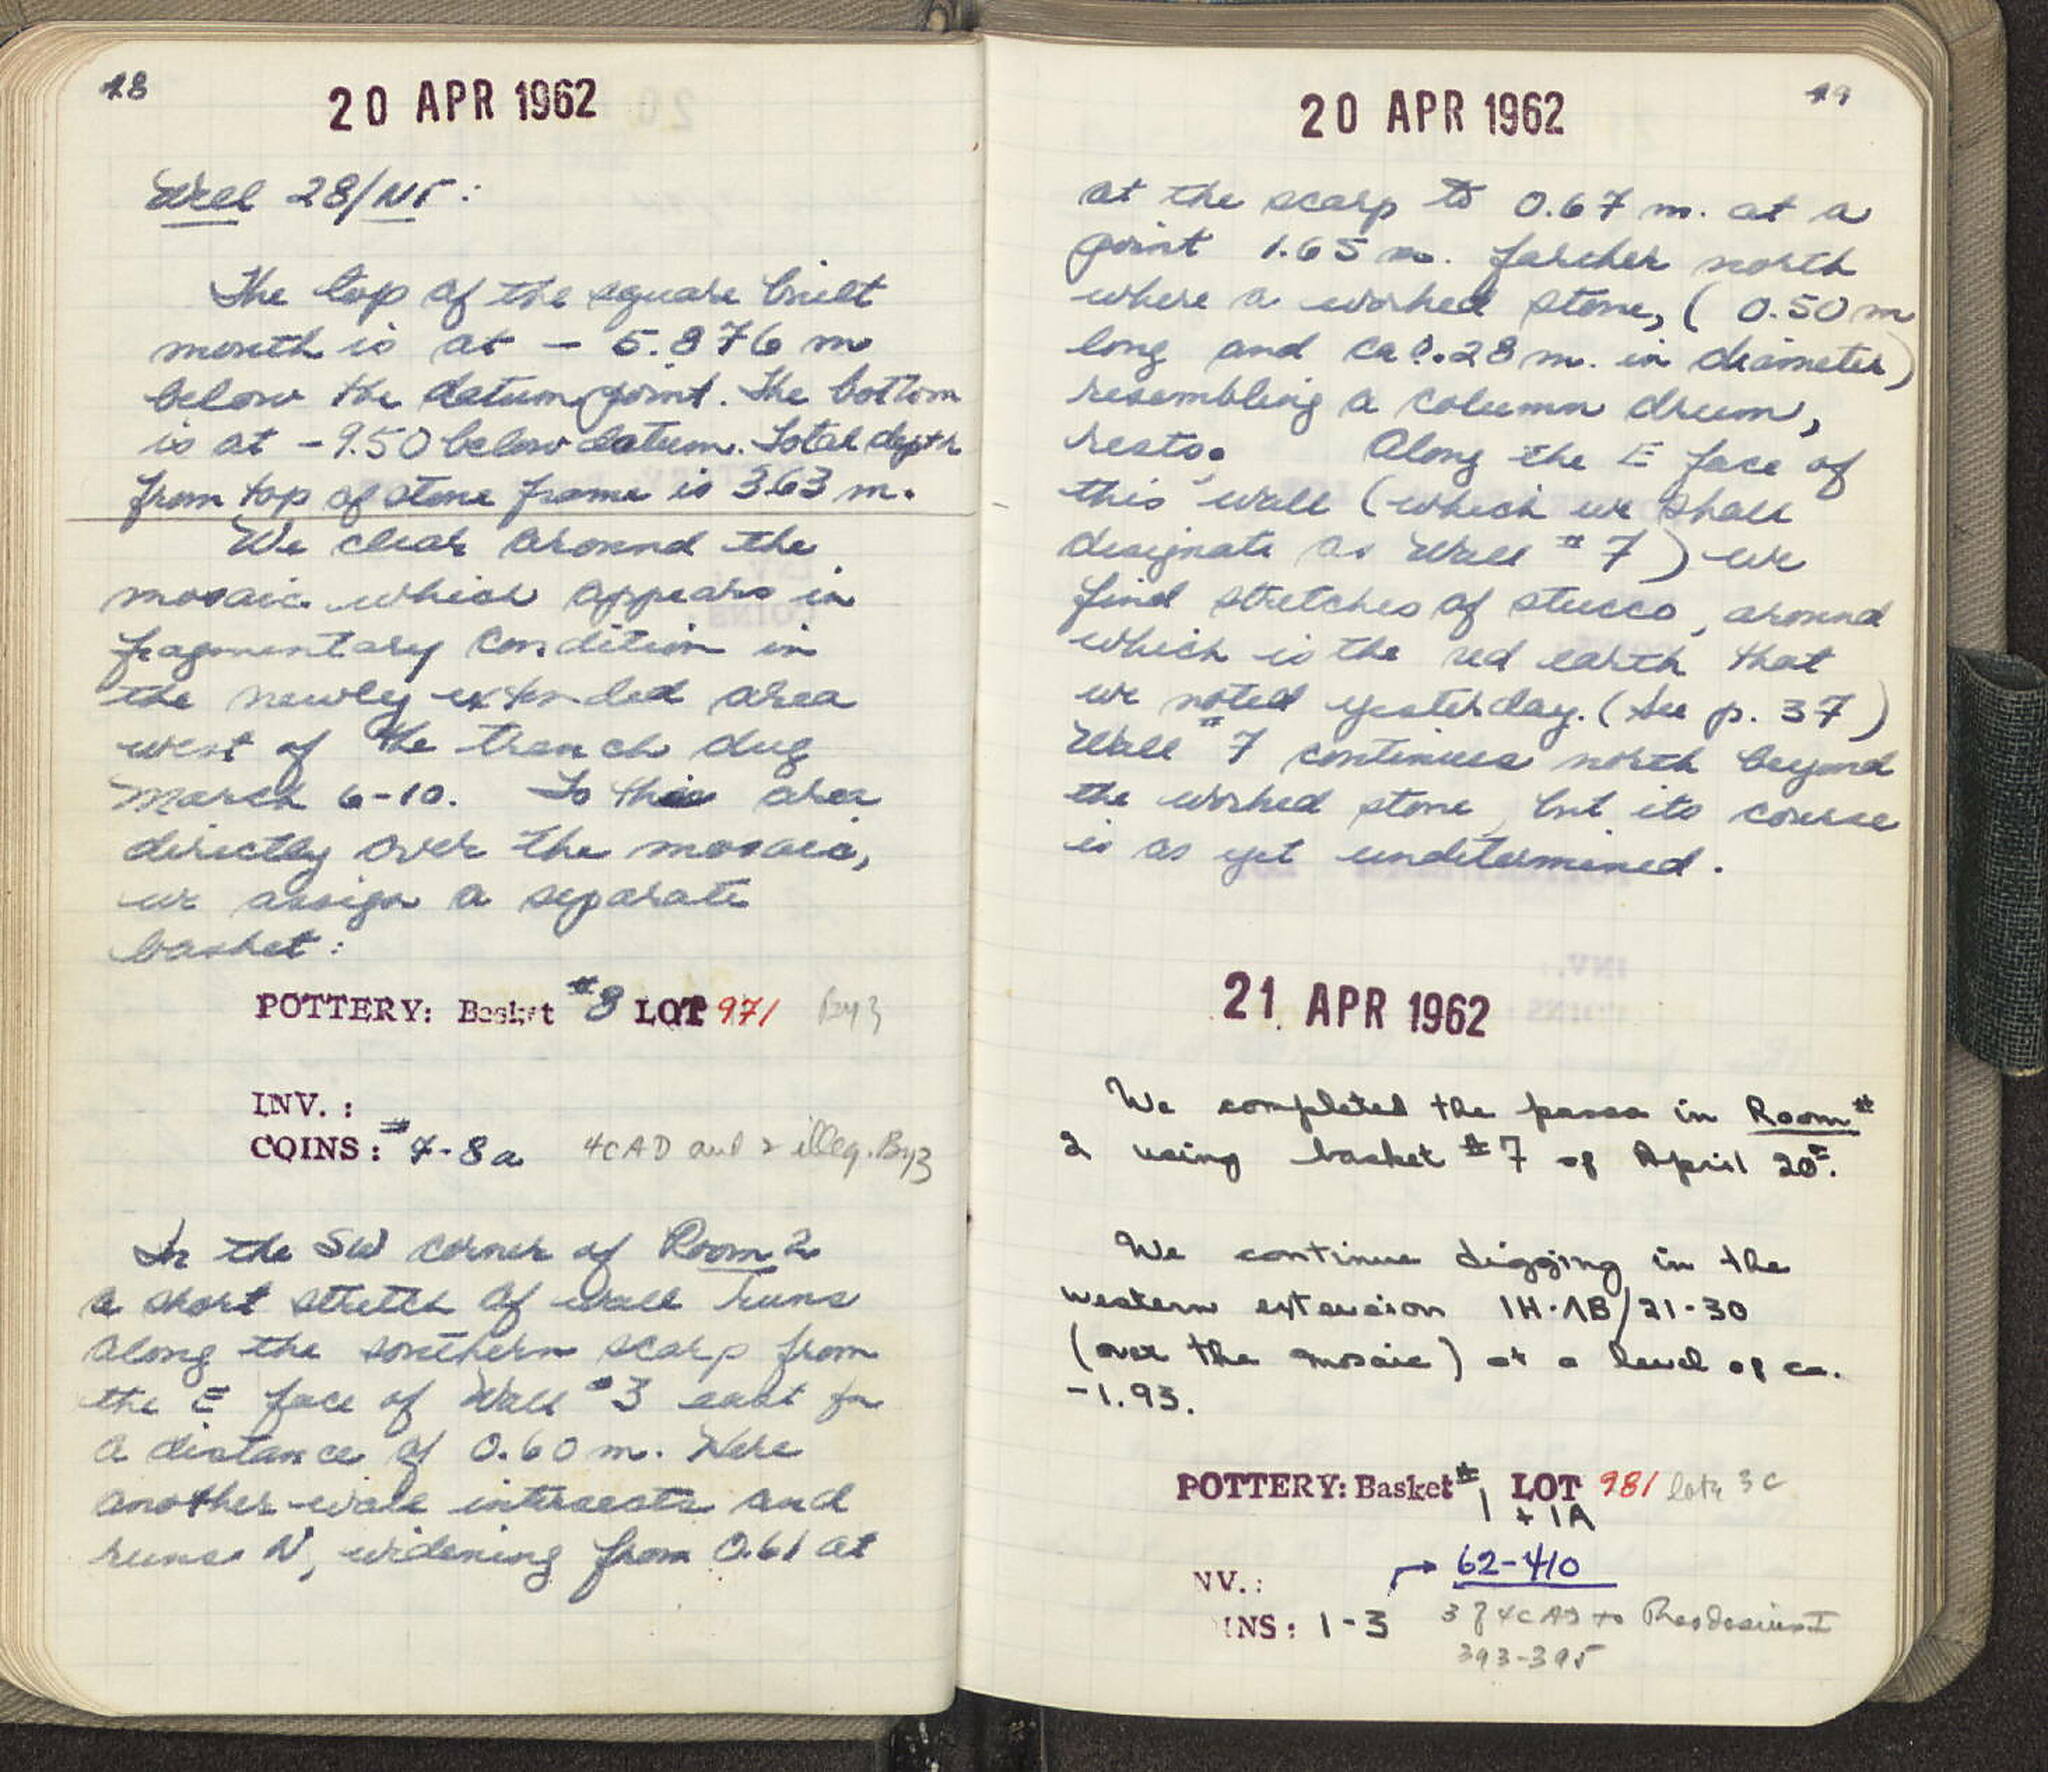 48
20 APR 1962
Well 28/NT:
The top of the square built
mouth is at - 5.876 m
below the datum point. The bottom
is at -9.50 below datum. Total depth
from top of stone frame is 3.63 m.
We clear around the
mosaic which appears in
fragmentary condition in
the newly extended area
west of the trench dug
March 6-10. To this area
directly over the mosaic,
we assign a separate
basket:
POTTERY: Basket #8 LOT 971 Byz
INV. :
COINS: #4-8a 4c AD and 2 illeg. Byz
In the SW corner of Room 2
a short stretch of wall runs
along the southern scarp from
the E face of Wall #3 east for
a distance of 0.60 m. Here
another wall intersects and
runs N, widening from 0.61 at
49
20 APR 1962
at the scarp to 0.67 m. at a
point 1.65 m. farther north
where a worked stone, (0.50 m
long and ca 0.28 m. in diameter)
resembling a column drum,
rests. Along the E face of
this wall (which we shall
designate as Wall #7) we
find stretches of stucco, around
which is the red earth that
we noted yesterday. (See p. 37)
Wall #7 continues north beyond
the worked stone, but its course
is as yet undetermined.
21 APR 1962
We completed the passa in Room #
2 using basket #7 of April 20
We continue digging in the
western extension IH-ΛB/21-30
(over the mosaic) at a level of ca.
-1.93.
POTTERY: Basket # LOT 981 late 3 c
1 + 1A
NV.: → 62-410
INS: 1-3 3 of 4c AD to Theodosius I
393-395